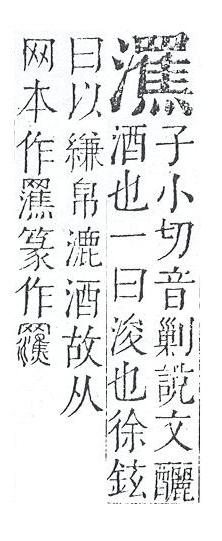 子小切音剿說文釃
酒也一曰浚也徐鉉
曰以縑帛漉酒故从
网本作篆作